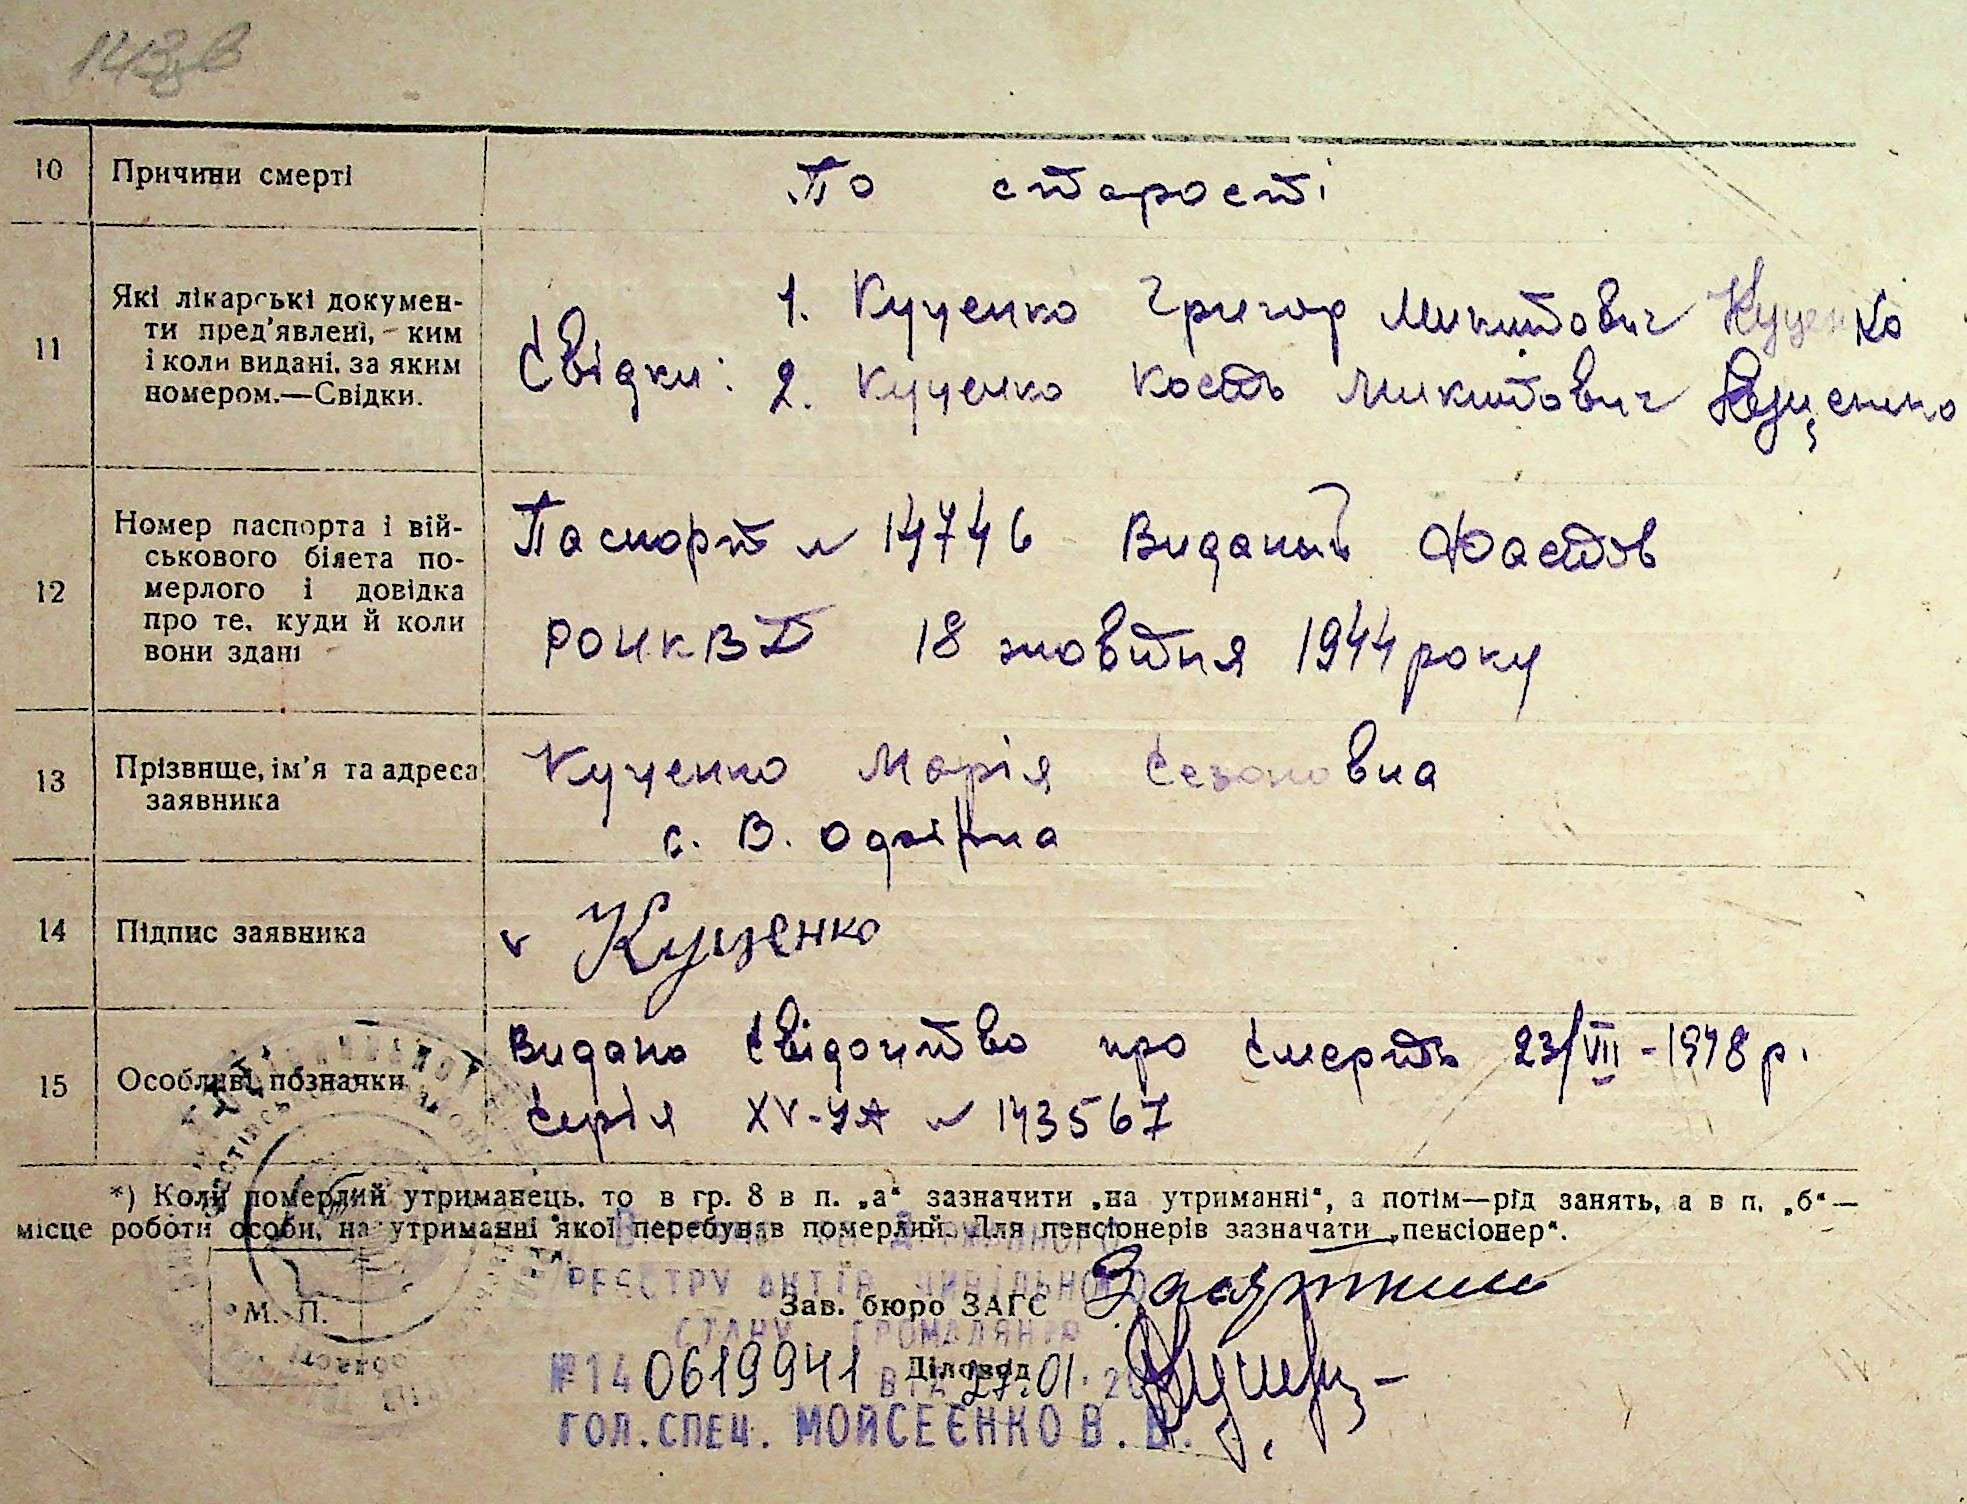 10 Причини смерті По старості
11 Які лікарські докумен-
ти пред'явлені, - ким
і коли видані, за яким
номером.—Свідки.
Свідки: 1. Куценко Григор Микитович Куценко
2. Куценко Кость Микитович Куценко
12 Номер паспорта і вій-
ськового білета по-
мерлого і довідка
про те, куди й коли
вони здані
Паспорт № 14746 Виданий Фастов
РОНКВД 18 жовтня 1944 року
13 Прізвище, ім'я та адреса
заявника
Куценко Марія Сезоновна
с. В. Офірна
14 Підпис заявника v Куценко
15 Особливі позначки
Видано свідоцтво про смерть 23/VII-1948 р.
Серія XV-УА № 143567
*) Коли померлий утриманець, то в гр. 8 в п. „а“ зазначити „на утриманні“, а потім—рід занять, а в п. „б“—
місце роботи особи, на утриманні якої перебував померлий. Для пенсіонерів зазначати „пенсіонер“.
Державного
РЕЄСТРУ АКТІВ ЦИВІЛЬНОГО
М. П. Зав. бюро ЗАГС
СТАНУ ГРОМАДЯН
Діловод
№14 0619941 від 27.01.20
ГОЛ.СПЕЦ. МОЙСЕЄНКО В. В.